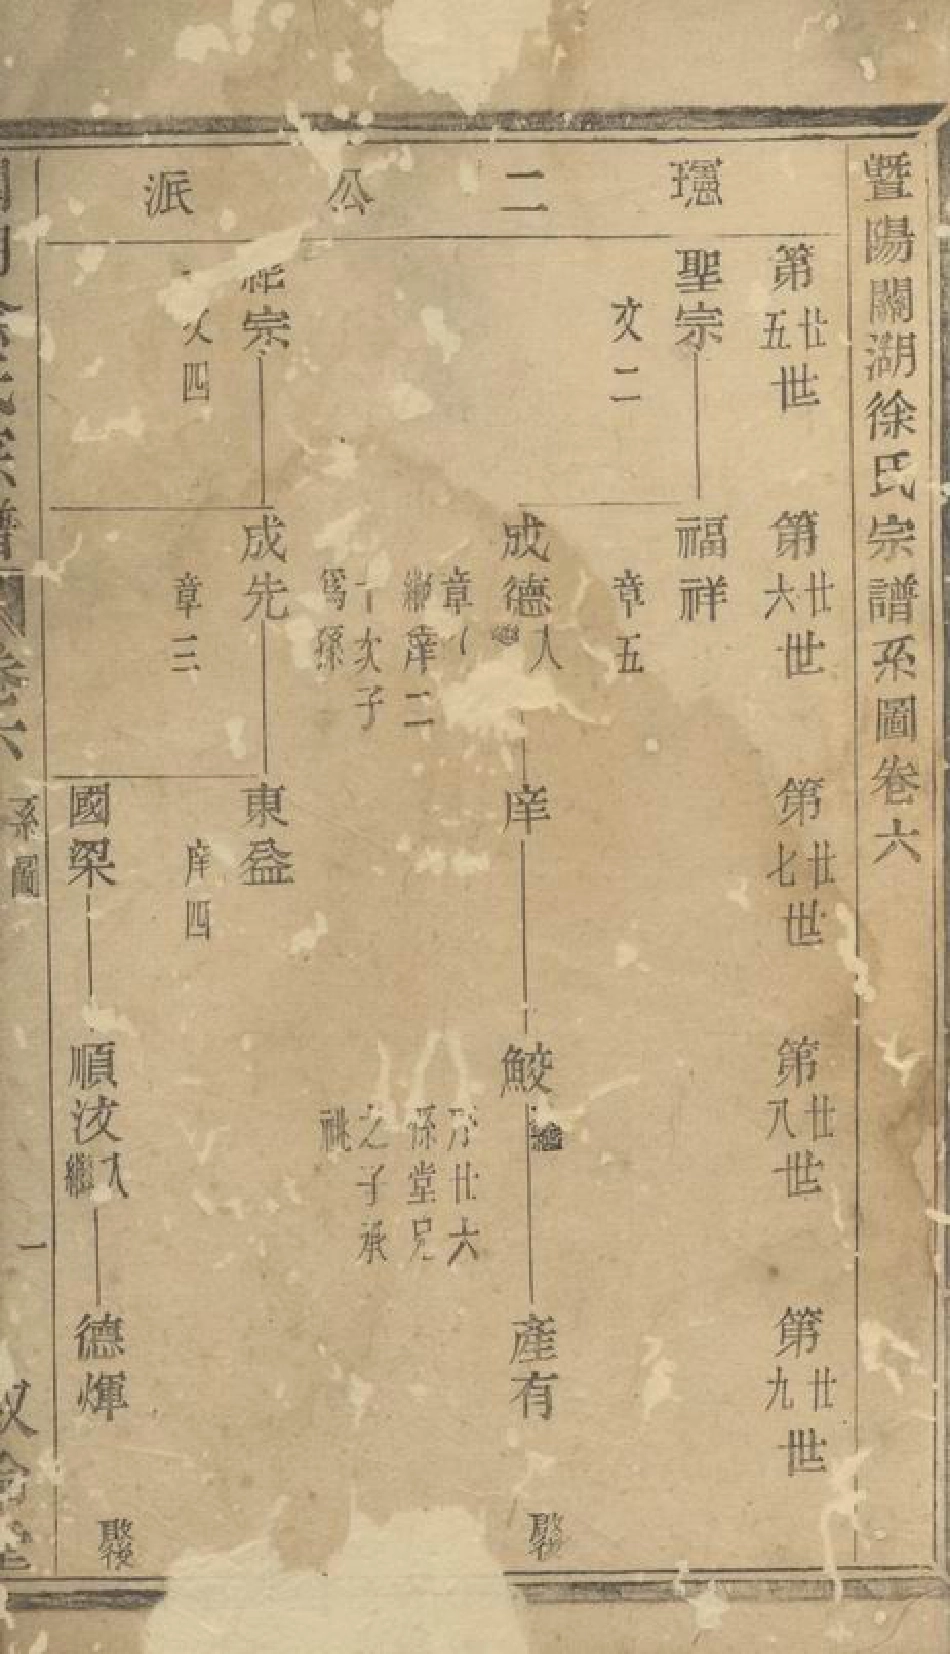 暨陽關湖徐氏宗譜系圖卷六
璁二公派
第廿五世
第廿六世
第廿七世
第廿八世
第廿九世
聖宗
文二
福祥
章五
成德
入繼
章八
繼庠二
十次子
爲孫
庠
鮫
繼
序廿六
孫堂兄
之子承
祧
產有
宗
四
成先
章三
東益
庠四
國梁
順汶
入繼
德煇
系圖
一